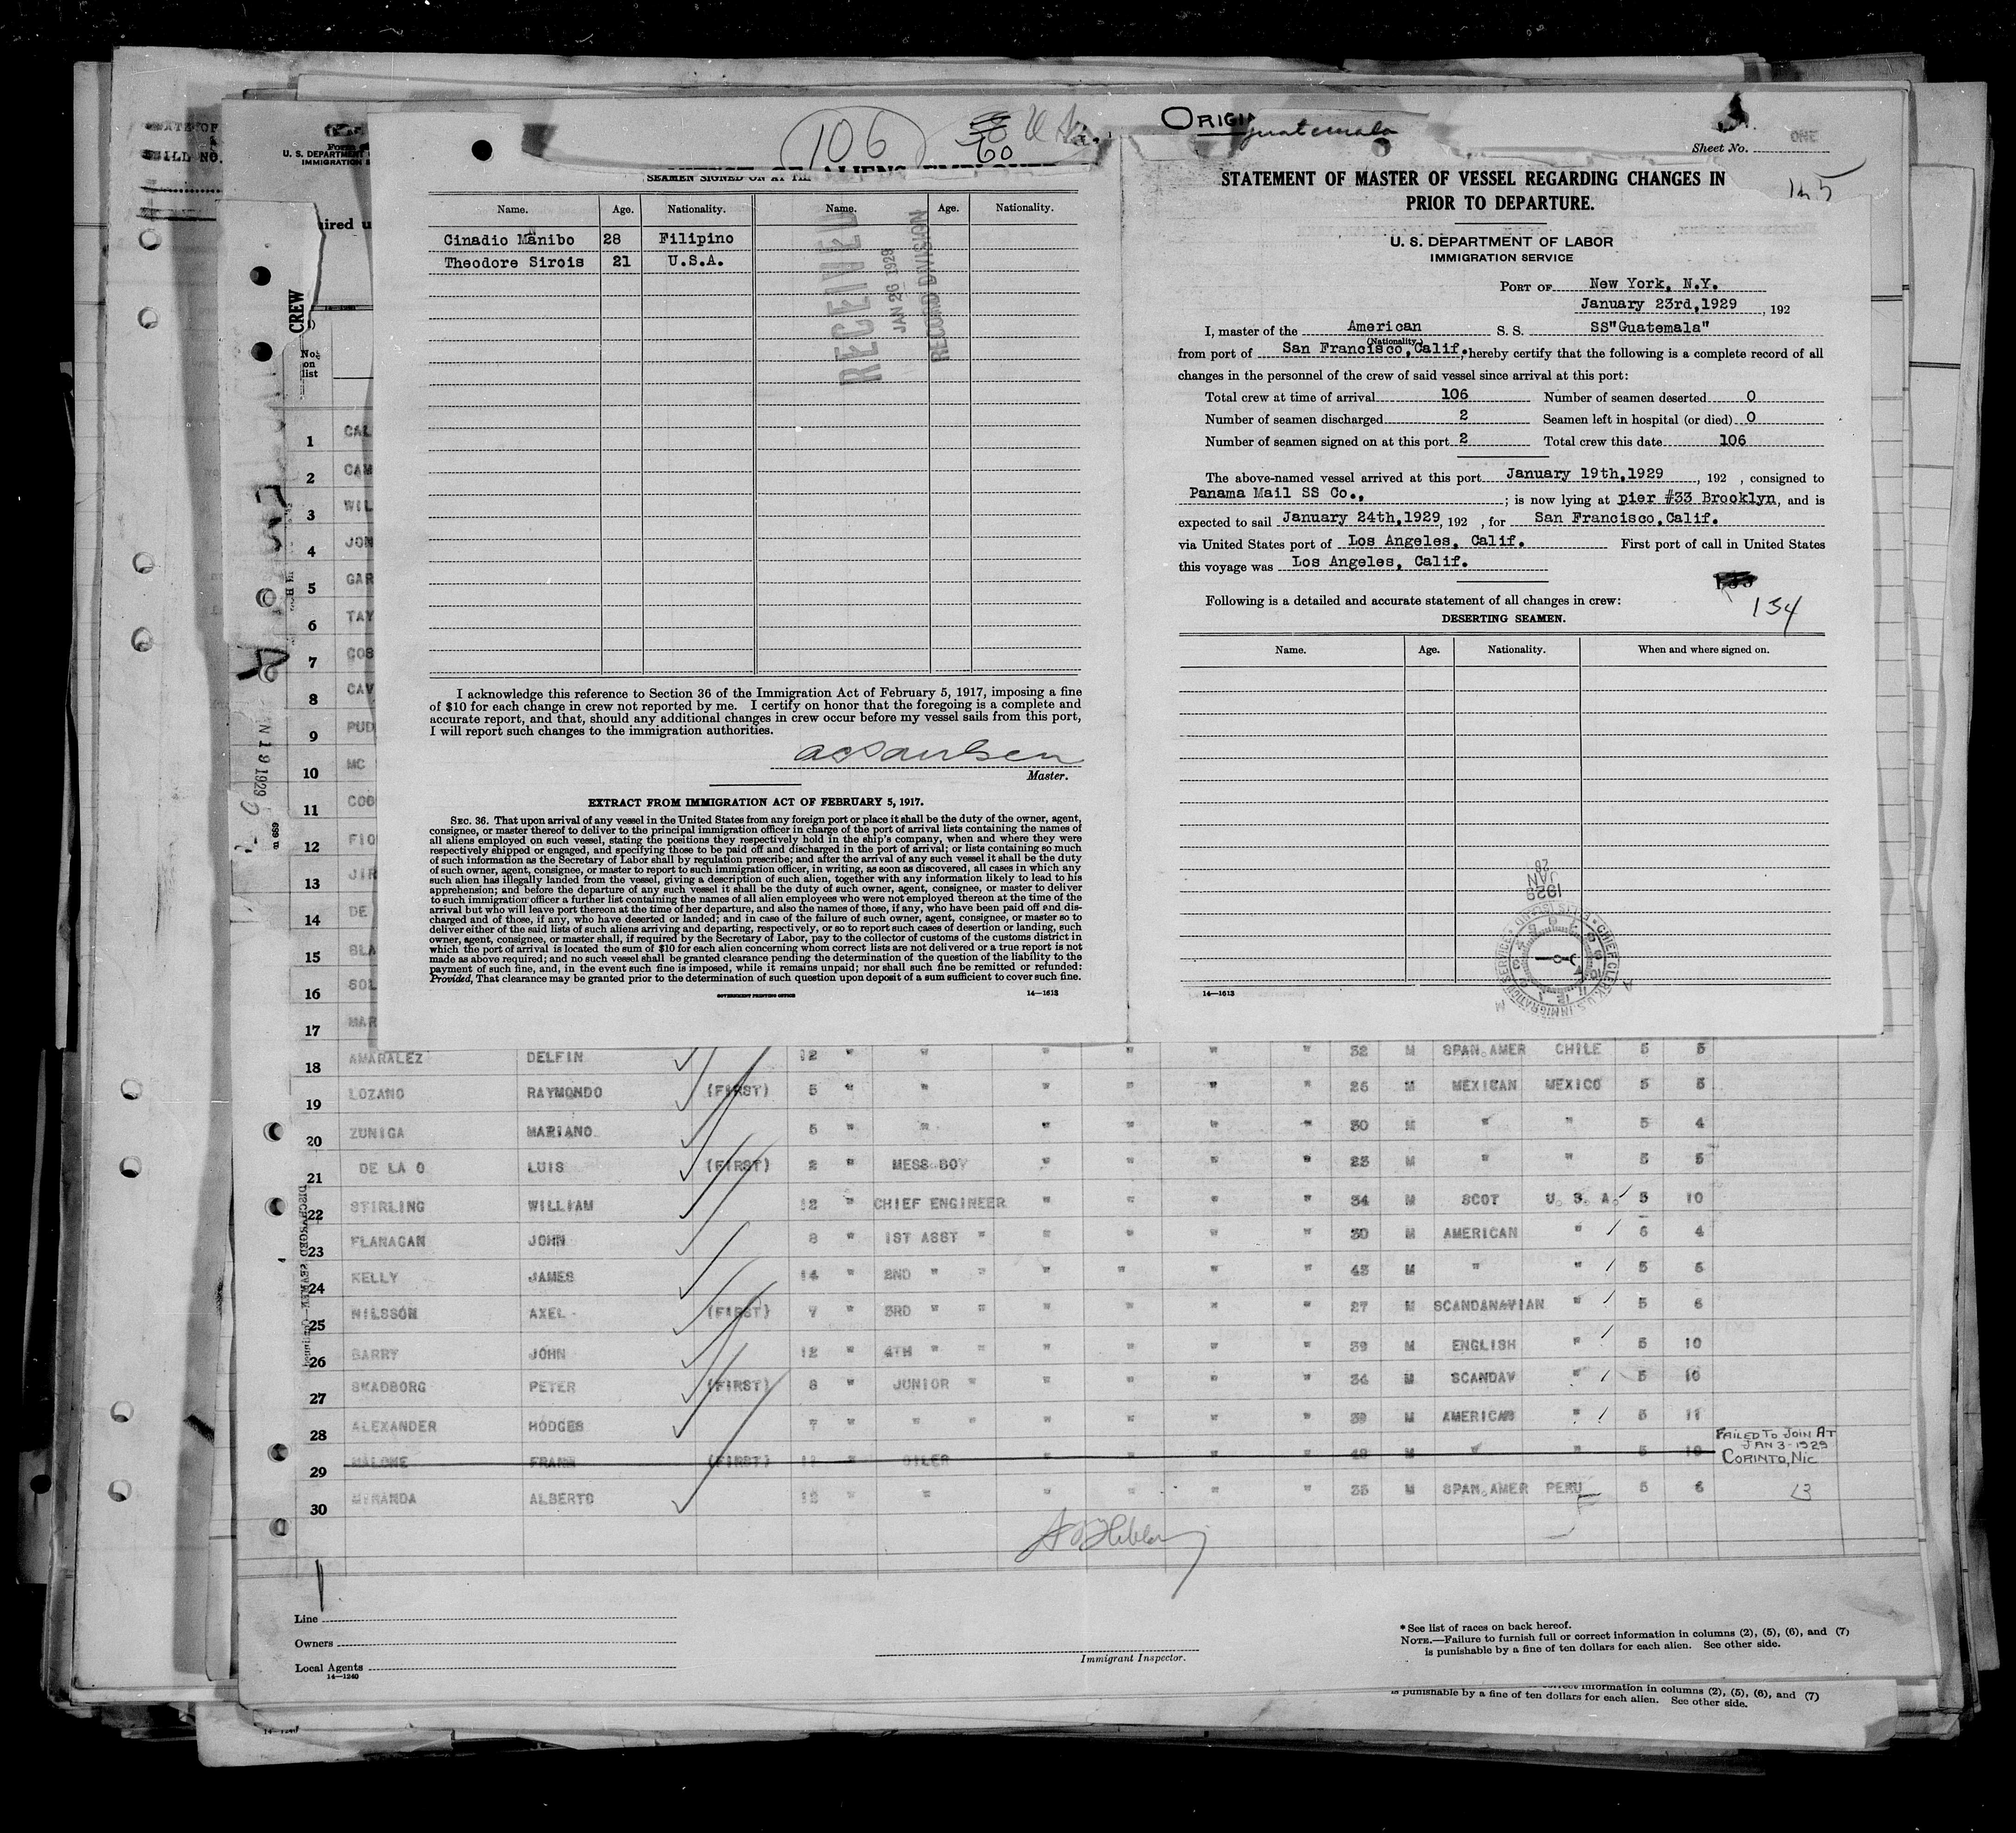 106
60
SEAMEN SIGNED ON AT
Name. Age. Nationality. Name. Age. Nationality.
Cinadio Manibo 28 Filipino
Theodore Sirois 21 U.S.A.
RECEIVED
JAN 26 1929
RECORD DIVISION
I acknowledge this reference to Section 36 of the Immigration Act of February 5, 1917, imposing a fine
of $10 for each change in crew not reported by me. I certify on honor that the foregoing is a complete and
accurate report, and that, should any additional changes in crew occur before my vessel sails from this port,
I will report such changes to the immigration authorities.
Master.
EXTRACT FROM IMMIGRATION ACT OF FEBRUARY 5, 1917.
SEC. 36. That upon arrival of any vessel in the United States from any foreign port or place it shall be the duty of the owner, agent,
consignee, or master thereof to deliver to the principal immigration officer in charge of the port of arrival lists containing the names of
all aliens employed on such vessel, stating the positions they respectively hold in the ship's company, when and where they were
respectively shipped or engaged, and specifying those to be paid off and discharged in the port of arrival; or lists containing so much
of such information as the Secretary of Labor shall by regulation prescribe; and after the arrival of any such vessel it shall be the duty
of such owner, agent, consignee, or master to report to such immigration officer, in writing, as soon as discovered, all cases in which any
such alien has illegally landed from the vessel, giving a description of such alien, together with any information likely to lead to his
apprehension; and before the departure of any such vessel it shall be the duty of such owner, agent, consignee, or master to deliver
to such immigration officer a further list containing the names of all alien employees who were not employed thereon at the time of the
arrival but who will leave port thereon at the time of her departure, and also the names of those, if any, who have been paid off and dis-
charged and of those, if any, who have deserted or landed; and in case of the failure of such owner, agent, consignee, or master so to
deliver either of the said lists of such aliens arriving and departing, respectively, or so to report such cases of desertion or landing, such
owner, agent, consignee, or master shall, if required by the Secretary of Labor, pay to the collector of customs of the customs district in
which the port of arrival is located the sum of $10 for each alien concerning whom correct lists are not delivered or a true report is not
made as above required; and no such vessel shall be granted clearance pending the determination of the question of the liability to the
payment of such fine, and, in the event such fine is imposed, while it remains unpaid; nor shall such fine be remitted or refunded:
Provided, That clearance may be granted prior to the determination of such question upon deposit of a sum sufficient to cover such fine.
GOVERNMENT PRINTING OFFICE 14—1613
Guatemala
Sheet No. ONE
STATEMENT OF MASTER OF VESSEL REGARDING CHANGES IN
PRIOR TO DEPARTURE.
U. S. DEPARTMENT OF LABOR
IMMIGRATION SERVICE
PORT OF New York, N.Y.
January 23rd,1929, 192
I, master of the American S. S. SS"Guatemala"
(Nationality)
from port of San Francisco,Calif. hereby certify that the following is a complete record of all
changes in the personnel of the crew of said vessel since arrival at this port:
Total crew at time of arrival 106 Number of seamen deserted 0
Number of seamen discharged 2 Seamen left in hospital (or died) 0
Number of seamen signed on at this port 2 Total crew this date 106
The above-named vessel arrived at this port January 19th,1929, 192 , consigned to
Panama Mail SS Co., ; is now lying at pier #33 Brooklyn, and is
expected to sail January 24th,1929, 192 , for San Francisco,Calif.
via United States port of Los Angeles, Calif. First port of call in United States
this voyage was Los Angeles, Calif.
134
Following is a detailed and accurate statement of all changes in crew:
DESERTING SEAMEN.
Name. Age. Nationality. When and where signed on.
1929
JAN
26
14—1613
U. S. DEPARTMENT
IMMIGRATION
CREW
No. on list
1 CAL
2 CAM
3 WIL
4 JON
5 GAR
6 TAY
7 COS
8 CAV
9 PUD
10 MC
11 COO
12 FIO
13 JIR
14 DE
15 BLA
16 SOL
17 MAR
18 AMARALEZ DELFIN 12 " " " " " " 32 M SPAN.AMER CHILE 5 5
19 LOZANO RAYMONDO (FIRST) 5 " " " " " 25 M MEXICAN MEXICO 5 5
20 ZUNIGA MARIANO 5 " " " " " " 30 M " " 5 4
21 DE LA O LUIS (FIRST) 2 " MESS BOY " " " " 23 M " " 5 5
22 STIRLING WILLIAM 12 " CHIEF ENGINEER " " " " 34 M SCOT U. S. A. 5 10
23 FLANAGAN JOHN 8 " 1ST ASST " " " " " 30 M AMERICAN " 6 4
24 KELLY JAMES 14 " 2ND " " " " " " 43 M " " 5 5
25 NILSSON AXEL (FIRST) 7 " 3RD " " " " " " 27 M SCANDANAVIAN " 5 6
26 BARRY JOHN 12 " 4TH " " " " " " 39 M ENGLISH " 5 10
27 SKADBORG PETER (FIRST) 8 " JUNIOR " " " " " 34 M SCANDAV " 5 10
28 ALEXANDER HODGES 7 " " " " " " " 39 M AMERICAN " 5 11
29 MALONE FRANK (FIRST) 12 " OILER " " " " 48 M " " 5 10
FAILED TO JOIN AT
JAN 3-1929
CORINTO, NIC
30 MIRANDA ALBERTO 12 " " " " " " 35 M SPAN.AMER PERU 5 6
Line
Owners
Local Agents
14—1240
Immigrant Inspector.
* See list of races on back hereof.
NOTE.—Failure to furnish full or correct information in columns (2), (5), (6), and (7)
is punishable by a fine of ten dollars for each alien. See other side.
information in columns (2), (5), (6), and (7)
is punishable by a fine of ten dollars for each alien. See other side.